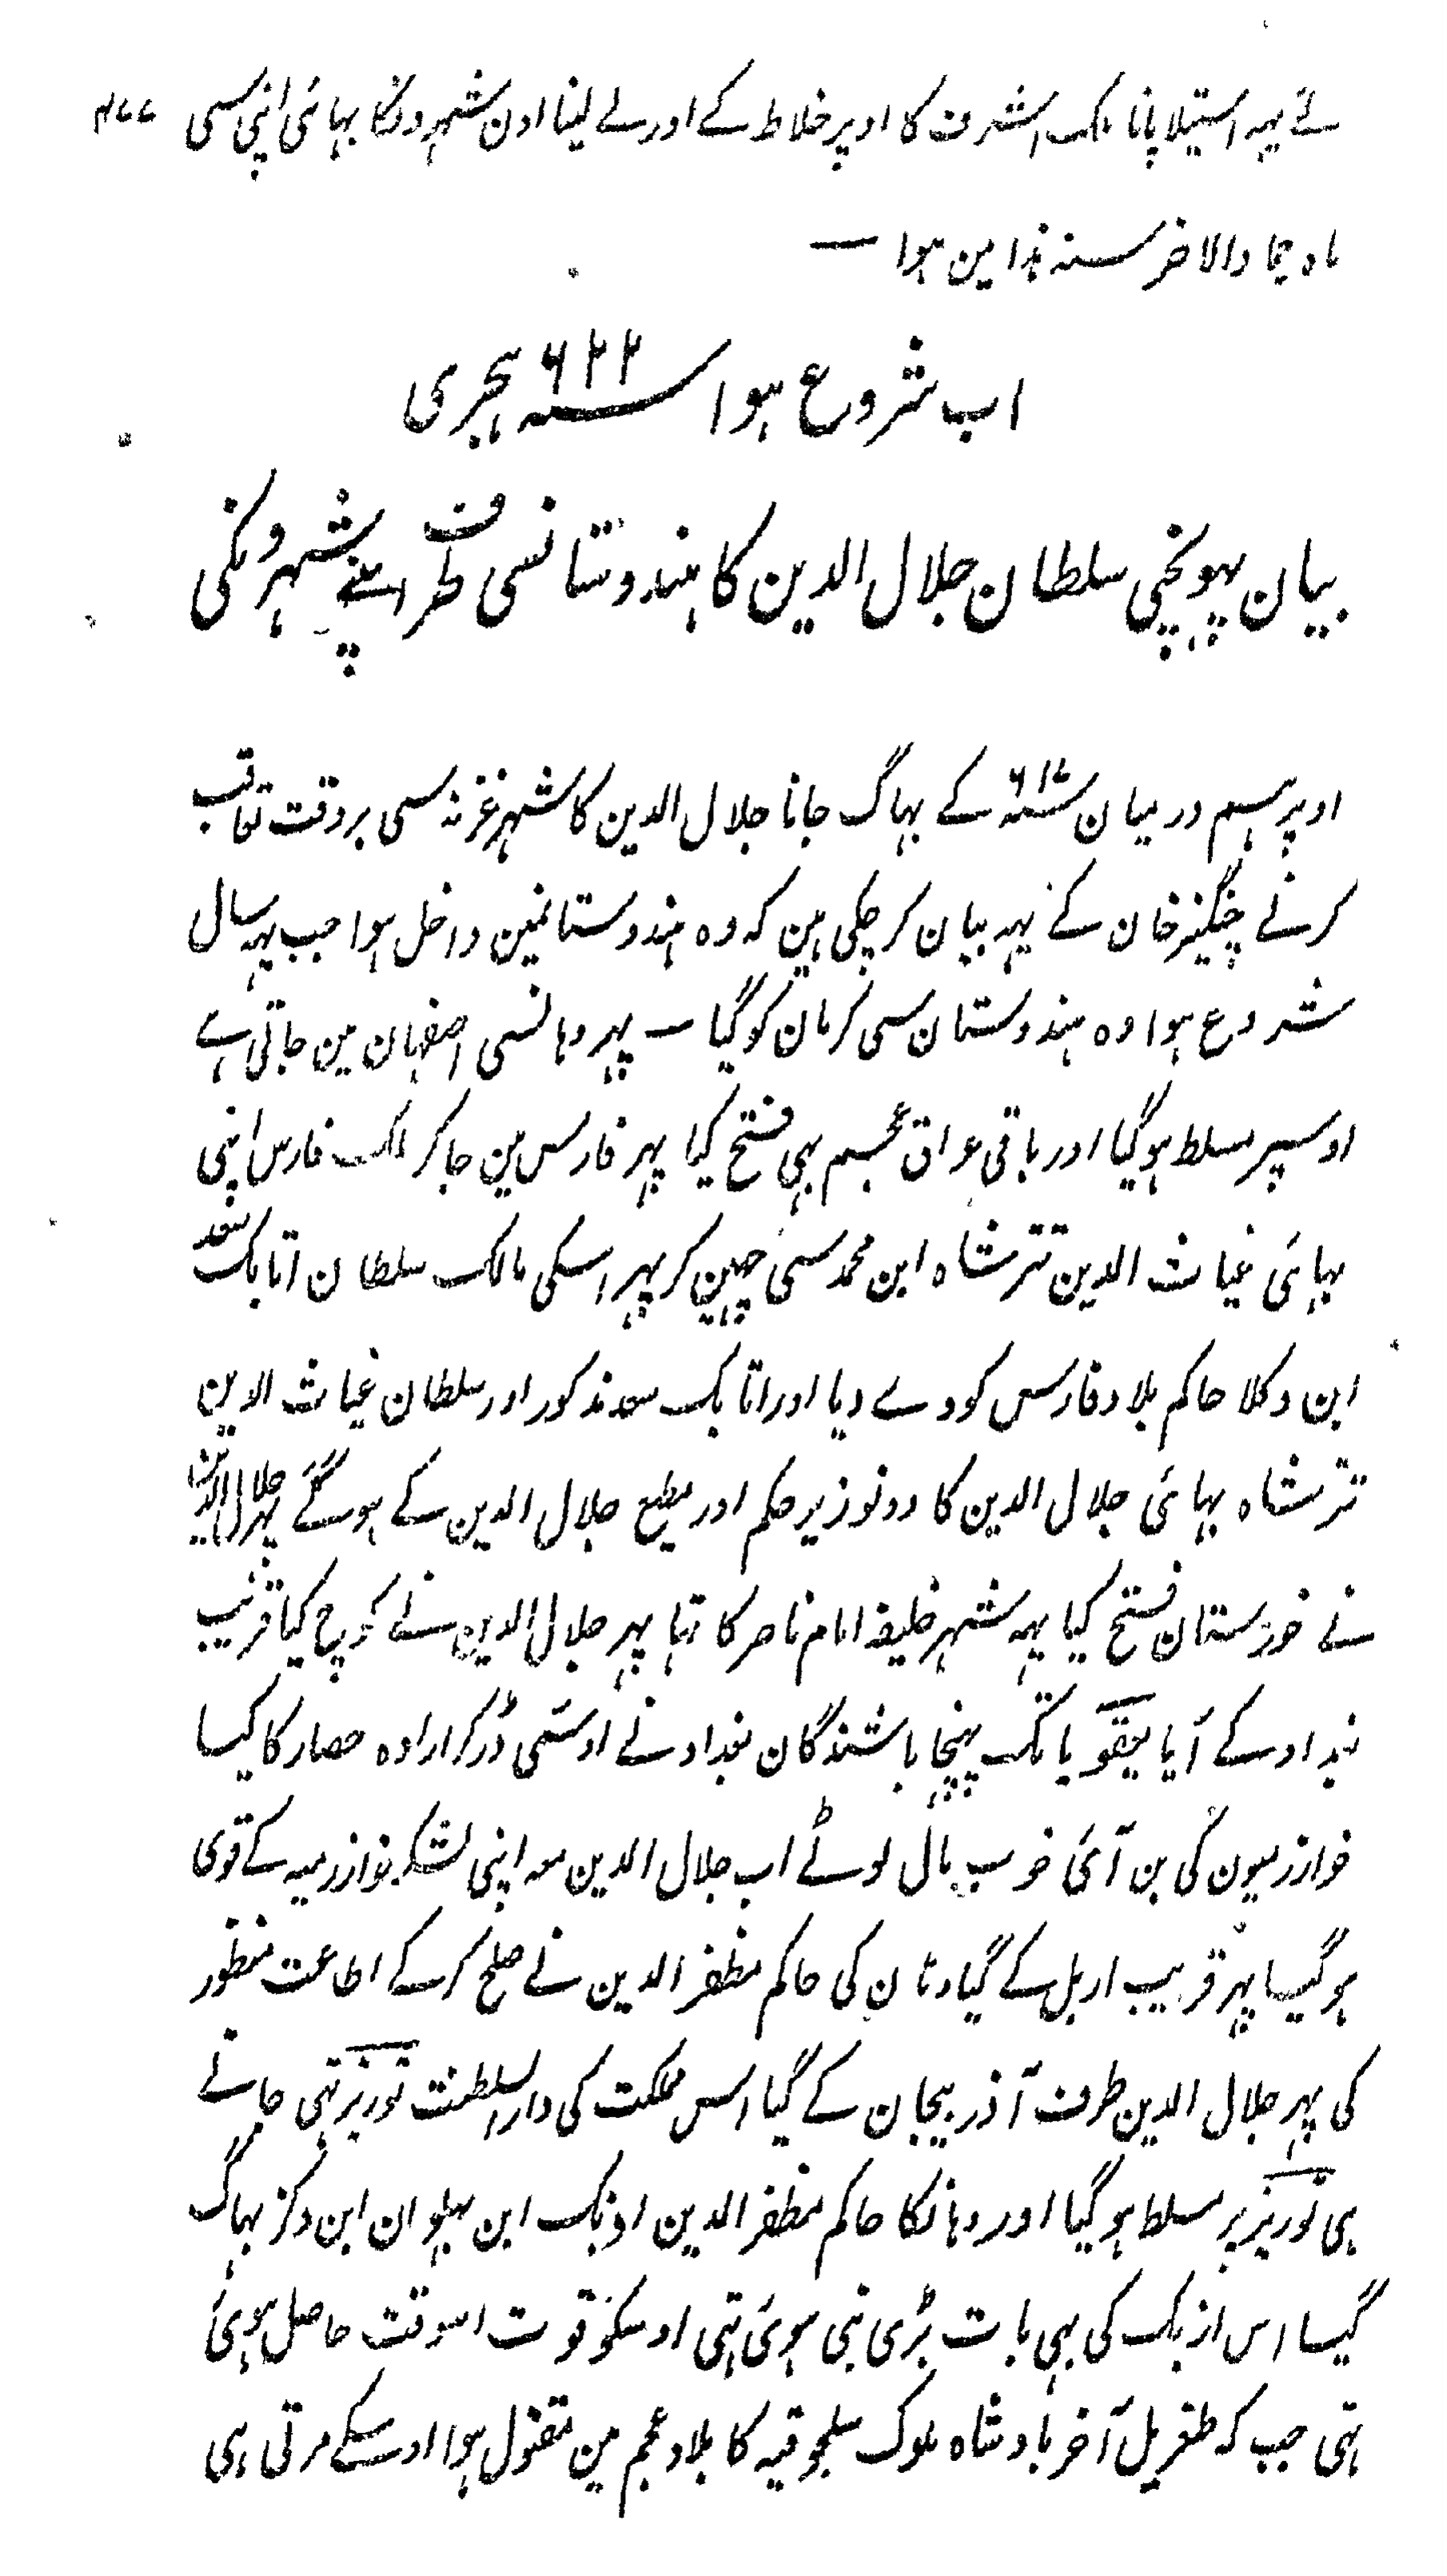 لئے یہہ استیلا پانا ملک اشرف کا اوپر خلاط کے اور لے لینا اون شہرونکا بہائی اپنی سی ۴۷۷
ماہ جمادالاخر سنہ ہذا مین ہوا —
اب شروع ہوا سنہ ۶۲۲ ہجری
بیان پہونچی سلطان جلال الدین کا ہندوستانسی طرف اپنے شہرونکی
اوپر ہم درمیان سنہ ۶۱۷ کے بہاگ جانا جلال الدین کا شہر غزنہ سی بروقت تعاقب
کرنے چنگیزخان کے یہہ بیان کر چکی ہین کہ وہ ہندوستانمین داخل ہوا جب یہہ سال
شروع ہوا وہ ہندوستان سی کرمان کو گیا — پہر وہانسی اصفہان مین جاتی ہے
اوسپر مسلط ہوگیا اور باقی عراق عجم بہی فتح کیا پہر فارس مین جا کر ملک فارس اپنی
بہائی غیاث الدین تترشاہ ابن محمد سی چہین کر پہر اسکی مالک سلطان اتابک سعد
ابن وکلا حاکم بلاد فارس کو دے دیا اور اتابک سعد مذکور اور سلطان غیاث الدین
تترشاہ بہائی جلال الدین کا دونو زیر حکم اور مطیع جلال الدین کے ہوگئے پہر جلال الدین
نے خوزستان فتح کیا یہہ شہر خلیفہ امام ناصر کا تہا پہر جلال الدین نے کوچ کیا قریب
بغداد کے آیا یعقوبا تک پہنچا باشندگان بغداد نے اوسسی ڈرکر ارادہ حصار کا کیا
خوارزمیون کی بن آئی خوب مال لوٹے اب جلال الدین معہ اپنی لشکر خوارزمیہ کے قوی
ہوگیا پہر قریب اربل کے گیا وہان کی حاکم مظفر الدین نے صلح کرکے اطاعت منظور
کی پہر جلال الدین طرف آذربیجان کے گیا اس مملکت کی دارالسلطنت توریز تہی جانے
ہی توریز پر مسلط ہوگیا اور وہانکا حاکم مظفر الدین اوزبک ابن پہلوان ابن دکز بہاگ
گیا اس ازبک کی بہی بات بڑی بنی ہوئی تہی اوسکو قوت اسوقت حاصل ہوئی
تہی جب کہ طغریل آخر بادشاہ ملوک سلجوقیہ کا بلاد عجم مین مقتول ہوا اوسکے مرتی ہی